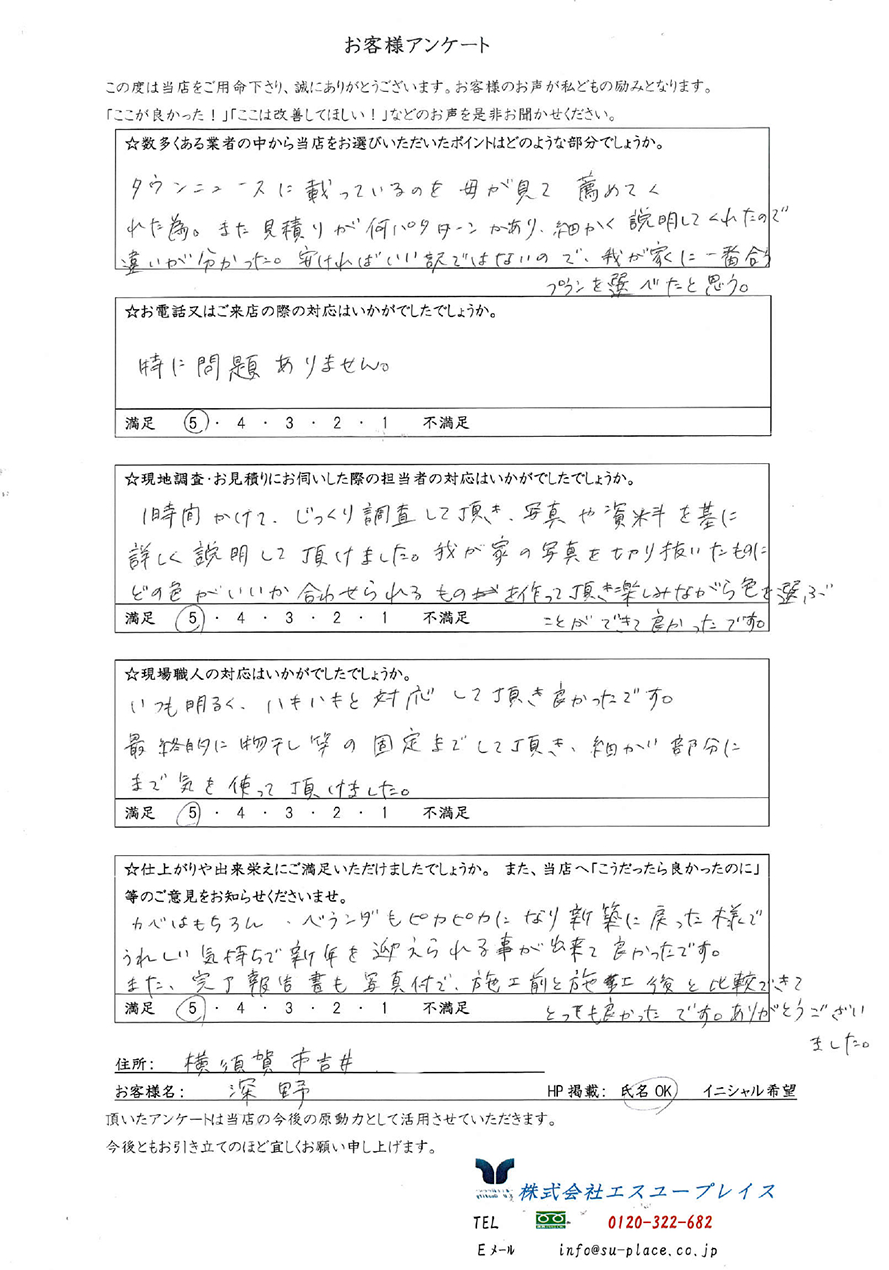 お客様アンケート
この度は当店をご用命下さり、誠にありがとうございます。お客様のお声が私どもの励みとなります。
「ここが良かった！」「ここは改善してほしい！」などのお声を是非お聞かせください。
☆数多くある業者の中から当店をお選びいただいたポイントはどのような部分でしょうか。
タウンニュースに載っているのを母が見て薦めてく
れた為。また見積りが何パターンかあり、細かく説明してくれたので
違いが分かった。安ければいい訳ではないので、我が家に一番合う
プランを選べたと思う。
☆お電話又はご来店の際の対応はいかがでしたでしょうか。
時に問題ありません。
満足 5・4・3・2・1 不満足
☆現地調査・お見積りにお伺いした際の担当者の対応はいかがでしたでしょうか。
1時間かけて、じっくり調査して頂き、写真や資料を基に
詳しく説明して頂けました。我が家の写真を切り抜いたものに
どの色がいいか合わせられるものを作って頂き楽しみながら色を選ぶ
ことができて良かったです。
満足 5・4・3・2・1 不満足
☆現場職人の対応はいかがでしたでしょうか。
いつも明るく、いきいきと対応して頂き良かったです。
最終的に物干し竿の固定までして頂き、細かい部分に
まで気を使って頂けました。
満足 5・4・3・2・1 不満足
☆仕上がりや出来栄えにご満足いただけましたでしょうか。 また、当店へ「こうだったら良かったのに」
等のご意見をお知らせくださいませ。
カベはもちろん、ベランダもピカピカになり新築に戻った様で
うれしい気持ちで新年を迎えられる事が出来て良かったです。
また、完了報告書も写真付で、施工前と施工後と比較できて
とっても良かったです。ありがとうござい
ました。
満足 5・4・3・2・1 不満足
住所： 横須賀市吉井
お客様名： 深野 HP掲載： 氏名OK イニシャル希望
頂いたアンケートは当店の今後の原動力として活用させていただきます。
今後ともお引き立てのほど宜しくお願い申し上げます。
株式会社エスユープレイス
TEL 0120-322-682
Eメール info@su-place.co.jp